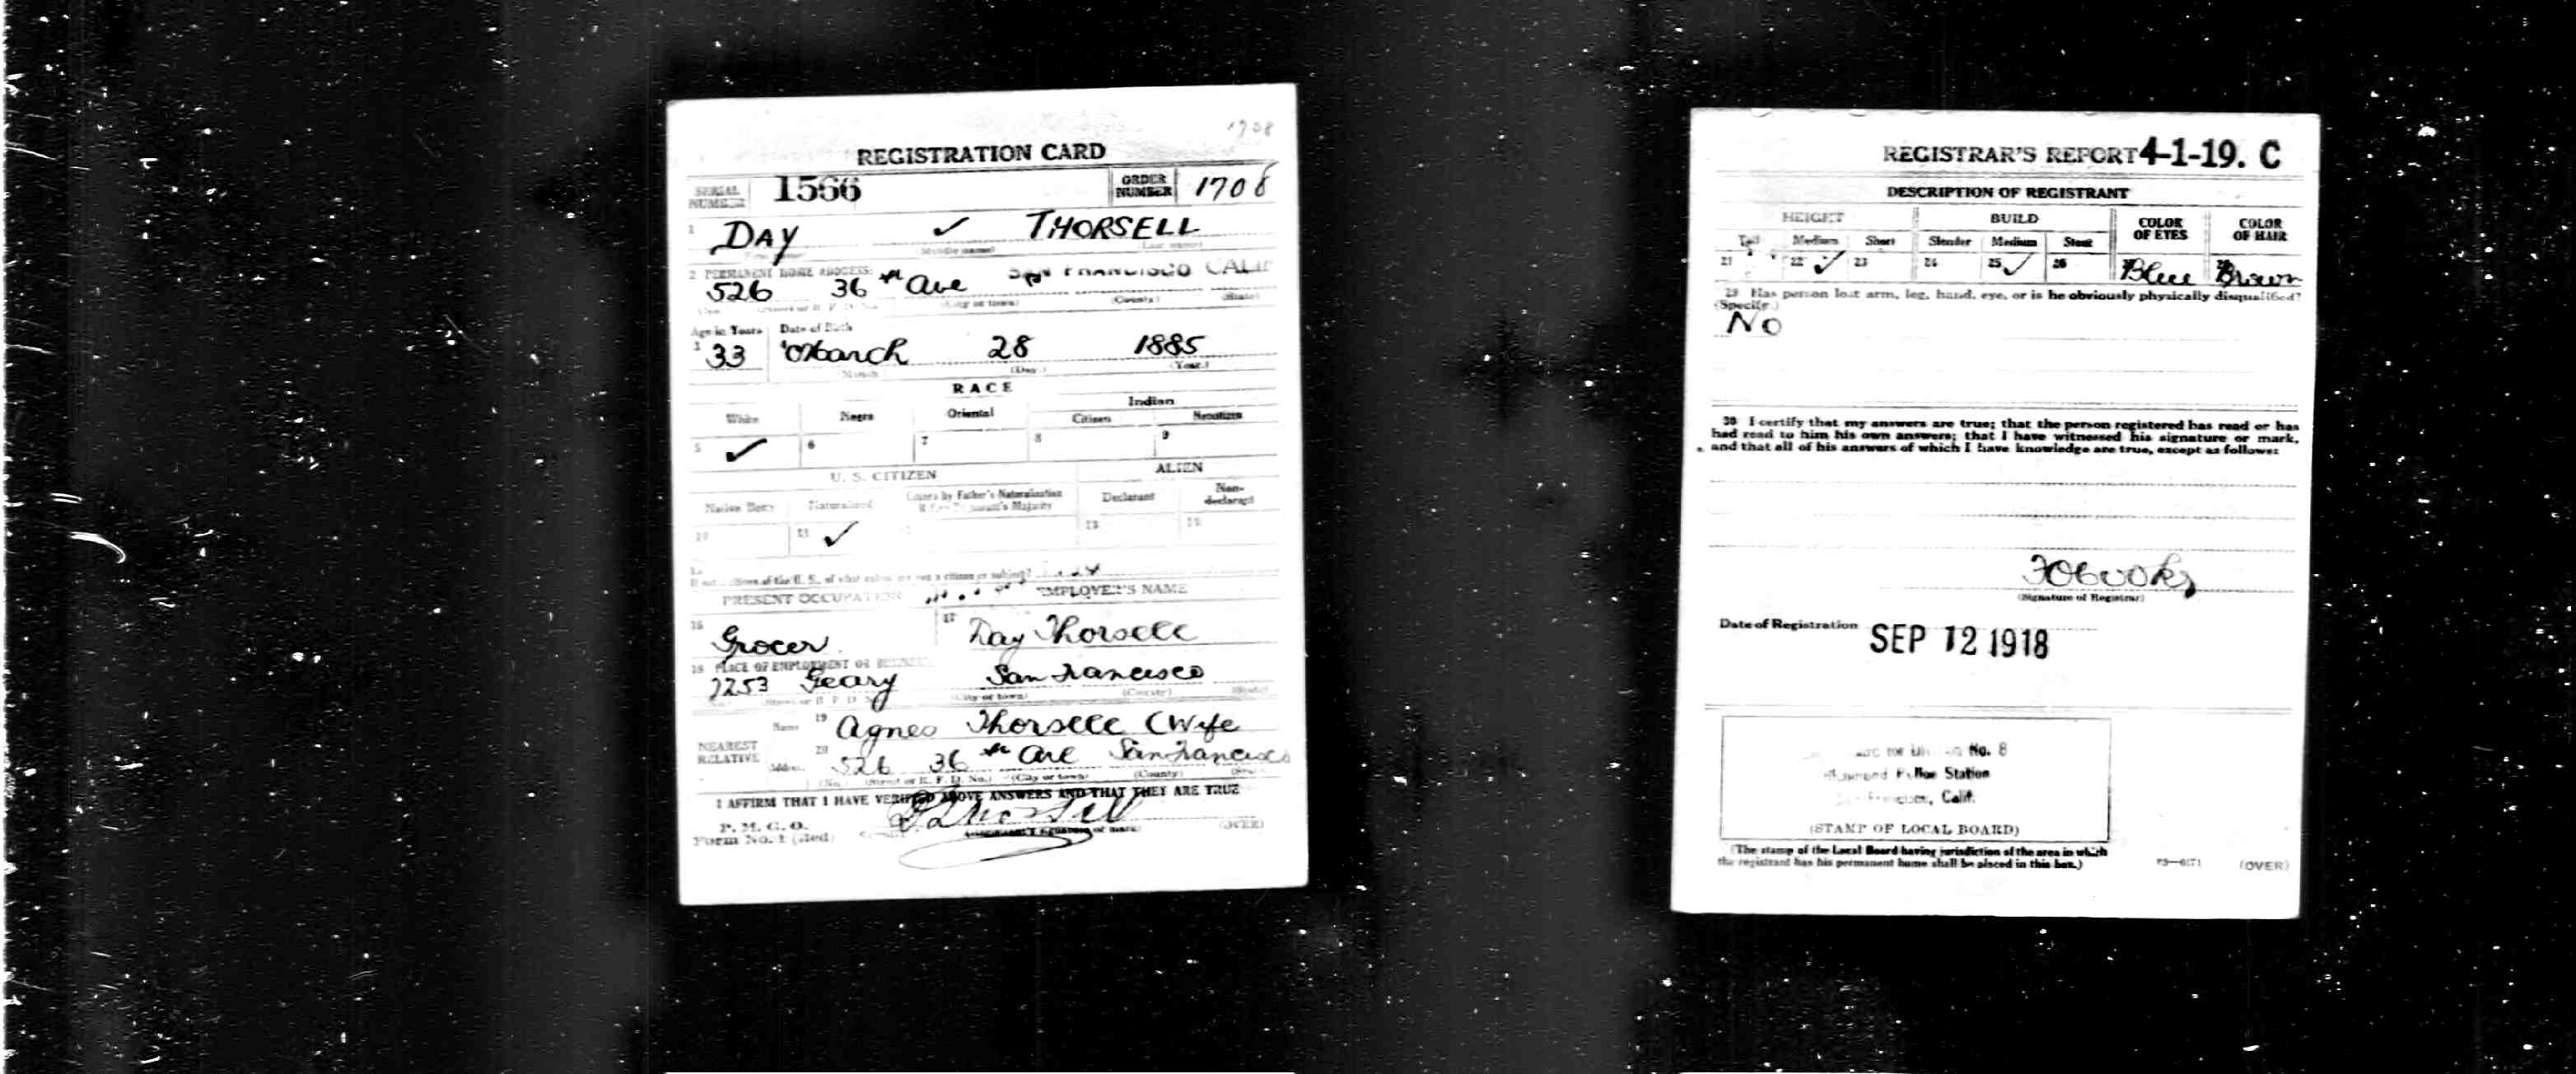 1708
REGISTRATION CARD
SERIAL NUMBER 1566 ORDER NUMBER 1708
1 DAY ✓ THORSELL
(Middle name) (Last name)
2 PERMANENT HOME ADDRESS:
526 36th Ave SAN FRANCISCO CALIF
(No.) (City or town) (County) (State)
Age in Years Date of Birth
3 33 March 28 1885
(Month) (Day.) (Year.)
RACE
White Negro Oriental Indian
Citizen Noncitizen
5 ✓ 6 7 8 9
U. S. CITIZEN ALIEN
Native Born Naturalized Citizen by Father's Naturalization Before Registrant's Majority Declarant Non-declarant
10 11 ✓ 13 14
15
If not a citizen of the U. S., of what nation are you a citizen or subject?
PRESENT OCCUPATION EMPLOYER'S NAME
16 Grocer 17 Day Thorsell
18 PLACE OF EMPLOYMENT OR BUSINESS:
7253 Geary San Francisco
(No.) (Street or R. F. D. No.) (City or town) (County) (State)
NEAREST RELATIVE
Name 19 Agnes Thorsell (Wife
Address 20 526 36th Ave San Francisco
(No.) (Street or R. F. D. No.) (City or town) (County) (State)
I AFFIRM THAT I HAVE VERIFIED ABOVE ANSWERS AND THAT THEY ARE TRUE
P. M. G. O.
Form No. 1 (Red) Thorsell
(Registrant's signature or mark) (OVER)
REGISTRAR'S REPORT 4-1-19. C
DESCRIPTION OF REGISTRANT
HEIGHT BUILD COLOR OF EYES COLOR OF HAIR
Tall Medium Short Slender Medium Stout
21 22 ✓ 23 24 25 ✓ 26 27 Blue 28 Brown
29 Has person lost arm, leg, hand, eye, or is he obviously physically disqualified?
(Specify.)
No
30 I certify that my answers are true; that the person registered has read or has
had read to him his own answers; that I have witnessed his signature or mark,
and that all of his answers of which I have knowledge are true, except as follows:
(Signature of Registrar)
Date of Registration SEP 12 1918
No. 8
Richmond Police Station
San Francisco, Calif.
(STAMP OF LOCAL BOARD)
(The stamp of the Local Board having jurisdiction of the area in which
the registrant has his permanent home shall be placed in this box.)
03—6171 (OVER)